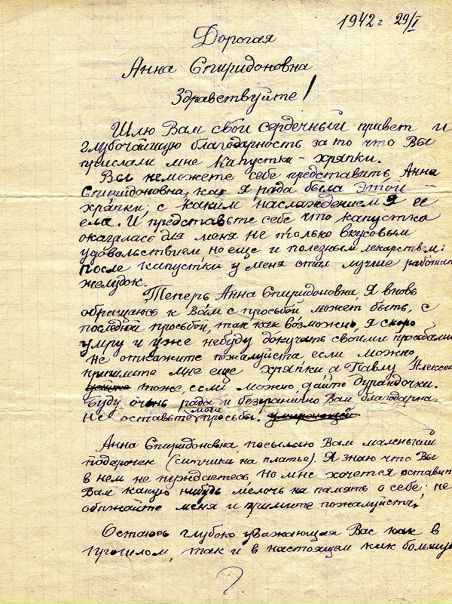 1942 г 29/I
Дорогая
Анна Спиридоновна
Здравствуйте!
Шлю Вам свой сердечный привет и
глубочайшую благодарность за то что Вы
прислали мне капустки-хряпки.
Вы неможете себе представить Анна
Спиридоновна, как я рада была этой
хряпки, с каким наслаждением я ее
ела. И представьте себе что капустка
оказалась для меня не только вкусовым
удовольствием но еще и полезным лекарством:
после капустки у меня стал лучше работать
желудок.
Теперь Анна Спиридоновна, я вновь
обращаюсь к Вам с просьбой может быть, с
последней просьбой, так как возможно, я скоро
умру и уже небуду докучать своими прозьбами
не откажите пожалуйста если можно
пришлите мне еще хряпки а Павлу Алексее
тоже, если можно дайте дурандочки.
Буду очень рада и безгранично Вам благодарна
Не оставьте моей просьбы. умирающей
Анна Спиридоновна, посылаю Вам маленький
подарочек (ситчика на платье). Я знаю что Вы
в нем не нуждаетесь, но мне хочется оставить
Вам какую нибудь мелочь на память о себе; не
обижайте меня и примите пожалуйста,
Остаюсь глубоко уважающая Вас как в
прошлом, так и в настоящем как большую